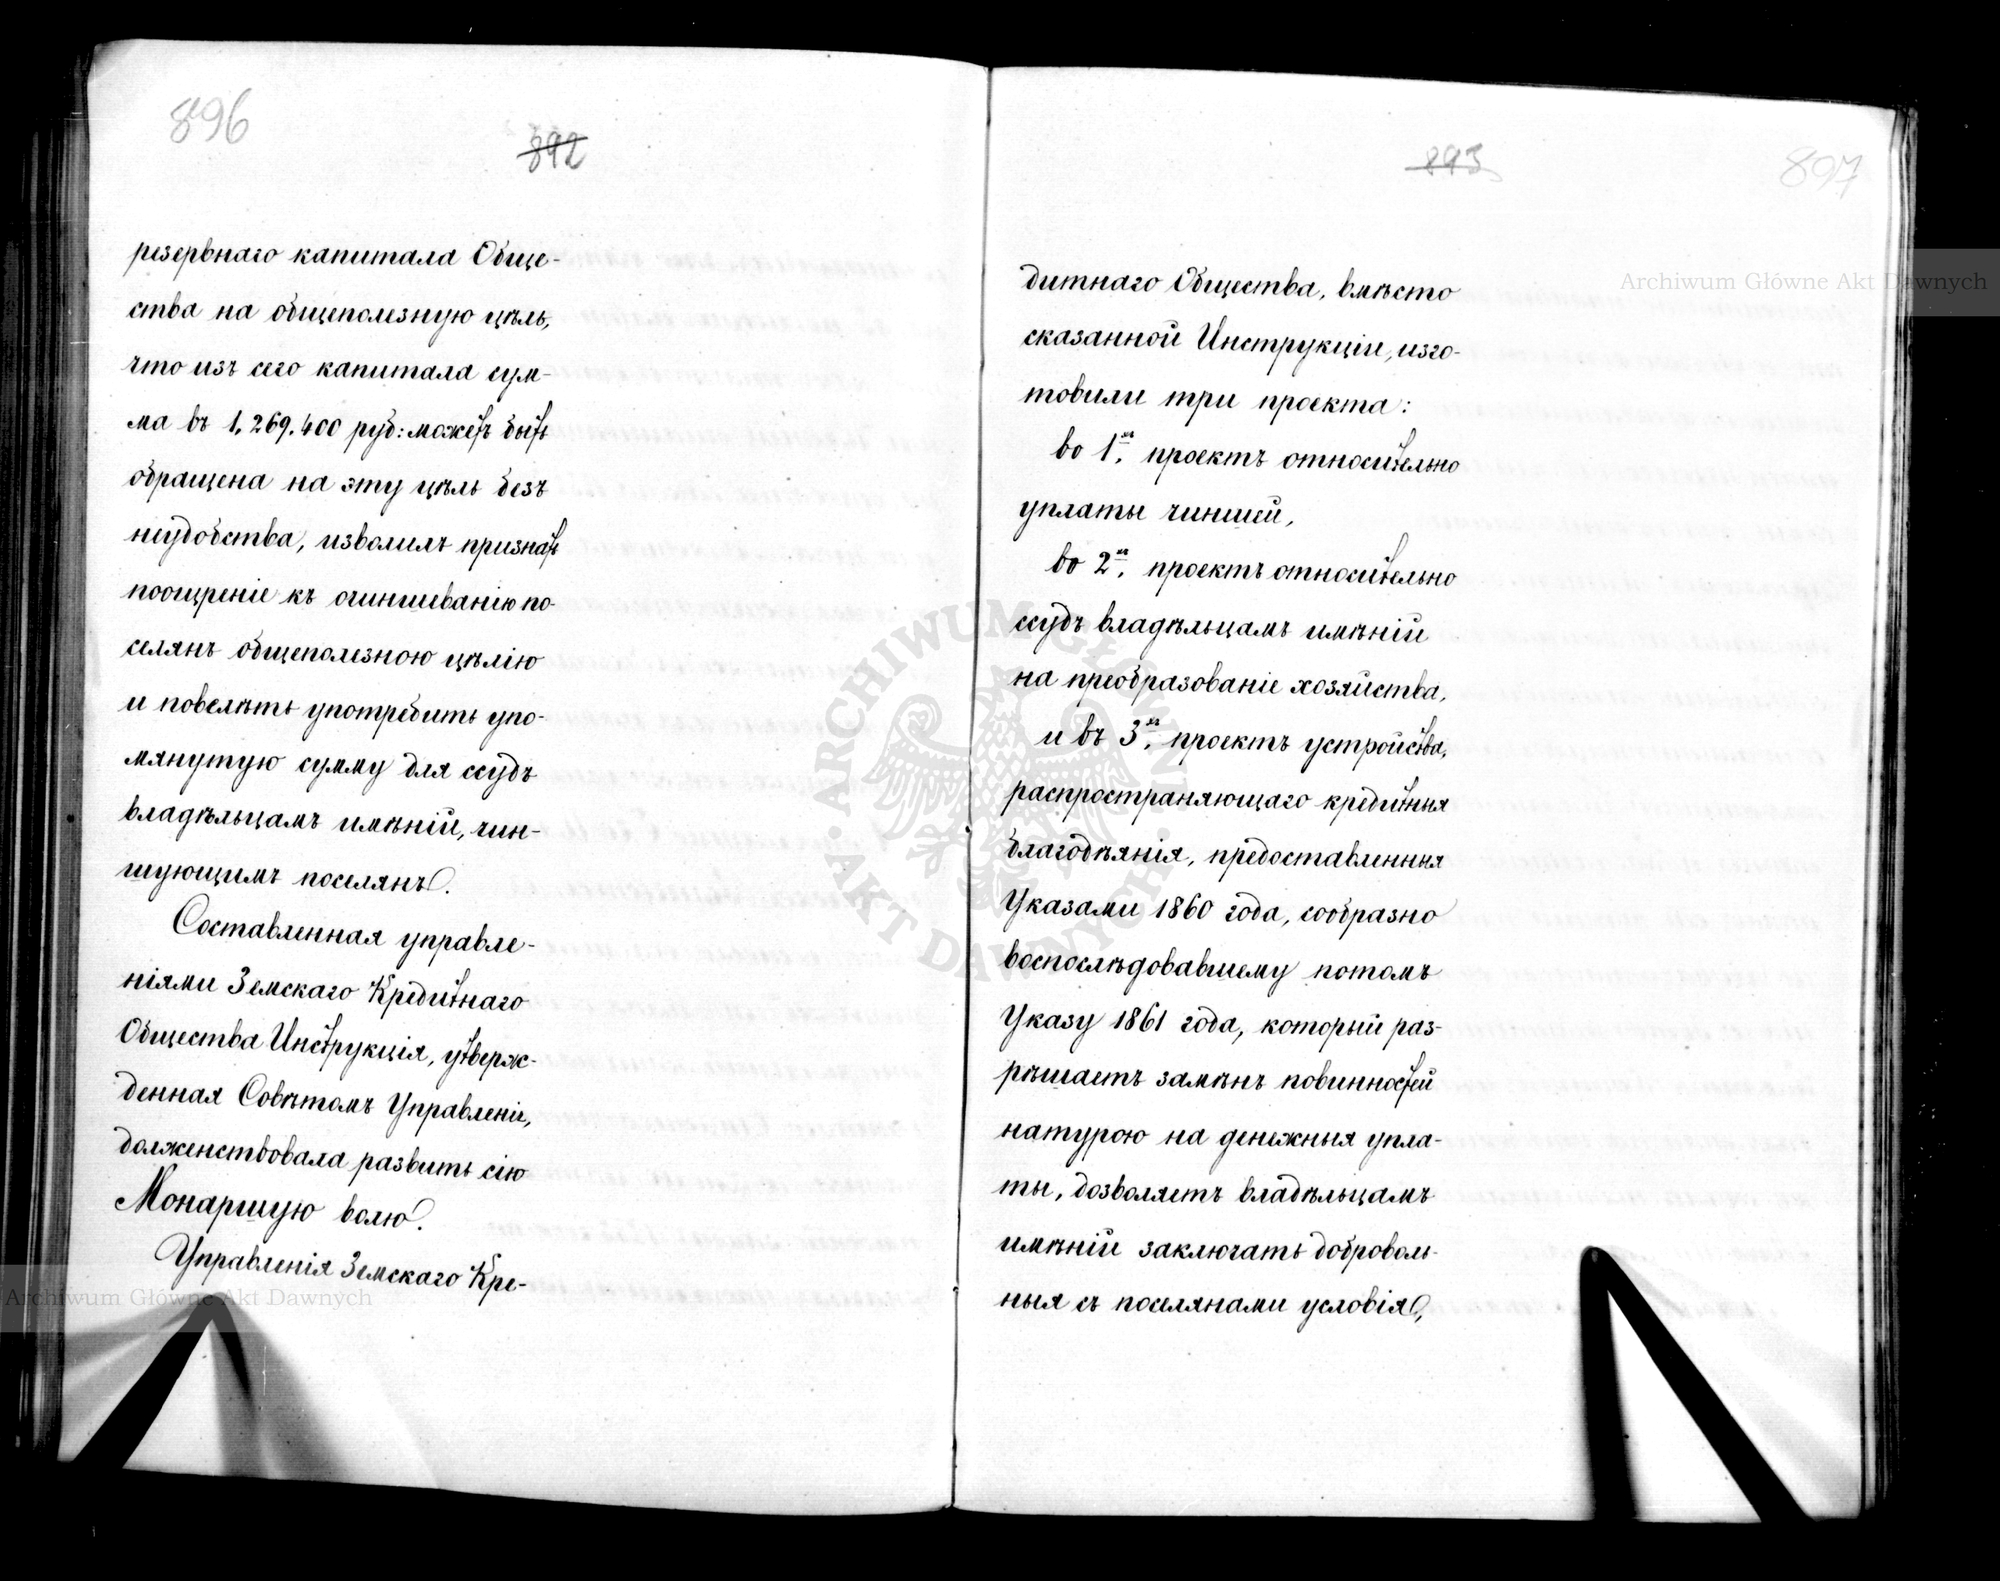 896
892
резервнаго капитала Обще-
ства на общеполезную цѣль,
что изъ сего капитала сум-
ма въ 1,269.400 руб: можетъ быть
обращена на эту цѣль безъ
неудобства, изволилъ признать
поощреніе къ очиншеванію по-
селянъ общеполезною цѣлію
и повелѣть употребить упо-
мянутую сумму для ссудъ
владѣльцамъ имѣній, чин-
шующимъ поселянъ.
Составленная управле-
ніями Земскаго Кредитнаго
Общества Инструкція, утверж-
денная Совѣтомъ Управленія,
долженствовала развить сію
Монаршую волю.
Управленія Земскаго Кре-
893
897
дитнаго Общества, вмѣсто
сказанной Инструкціи, изго-
товили три проекта:
во 1.хъ проектъ относительно
уплаты чиншей,
во 2.хъ проектъ относительно
ссудъ владѣльцамъ имѣній
на преобразованіе хозяйства,
и въ 3.хъ проектъ устройства,
распространяющаго кредитныя
благодѣянія, предоставленныя
Указами 1860 года, сообразно
воспослѣдовавшему потомъ
Указу 1861 года, который раз-
рѣшаетъ замѣнъ повинностей
натурою на денежныя упла-
ты, дозволяетъ владѣльцамъ
имѣній заключать доброволь-
ныя съ поселянами условія,
Archiwum Główne Akt Dawnych
Archiwum Główne Akt Dawnych
ARCHIWUM GŁÓWNE AKT DAWNYCH